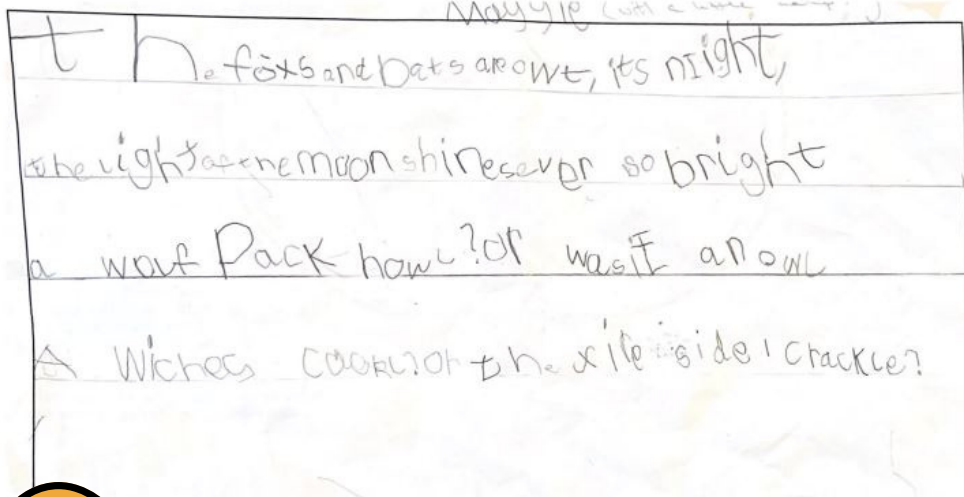 Mayyie (with a little
the foxs and bats are owt, its niight,
the light of the moon shines ever so bright
a wouf Pack howl? or was it an owl
A Wiches cackl? or the side crackle?